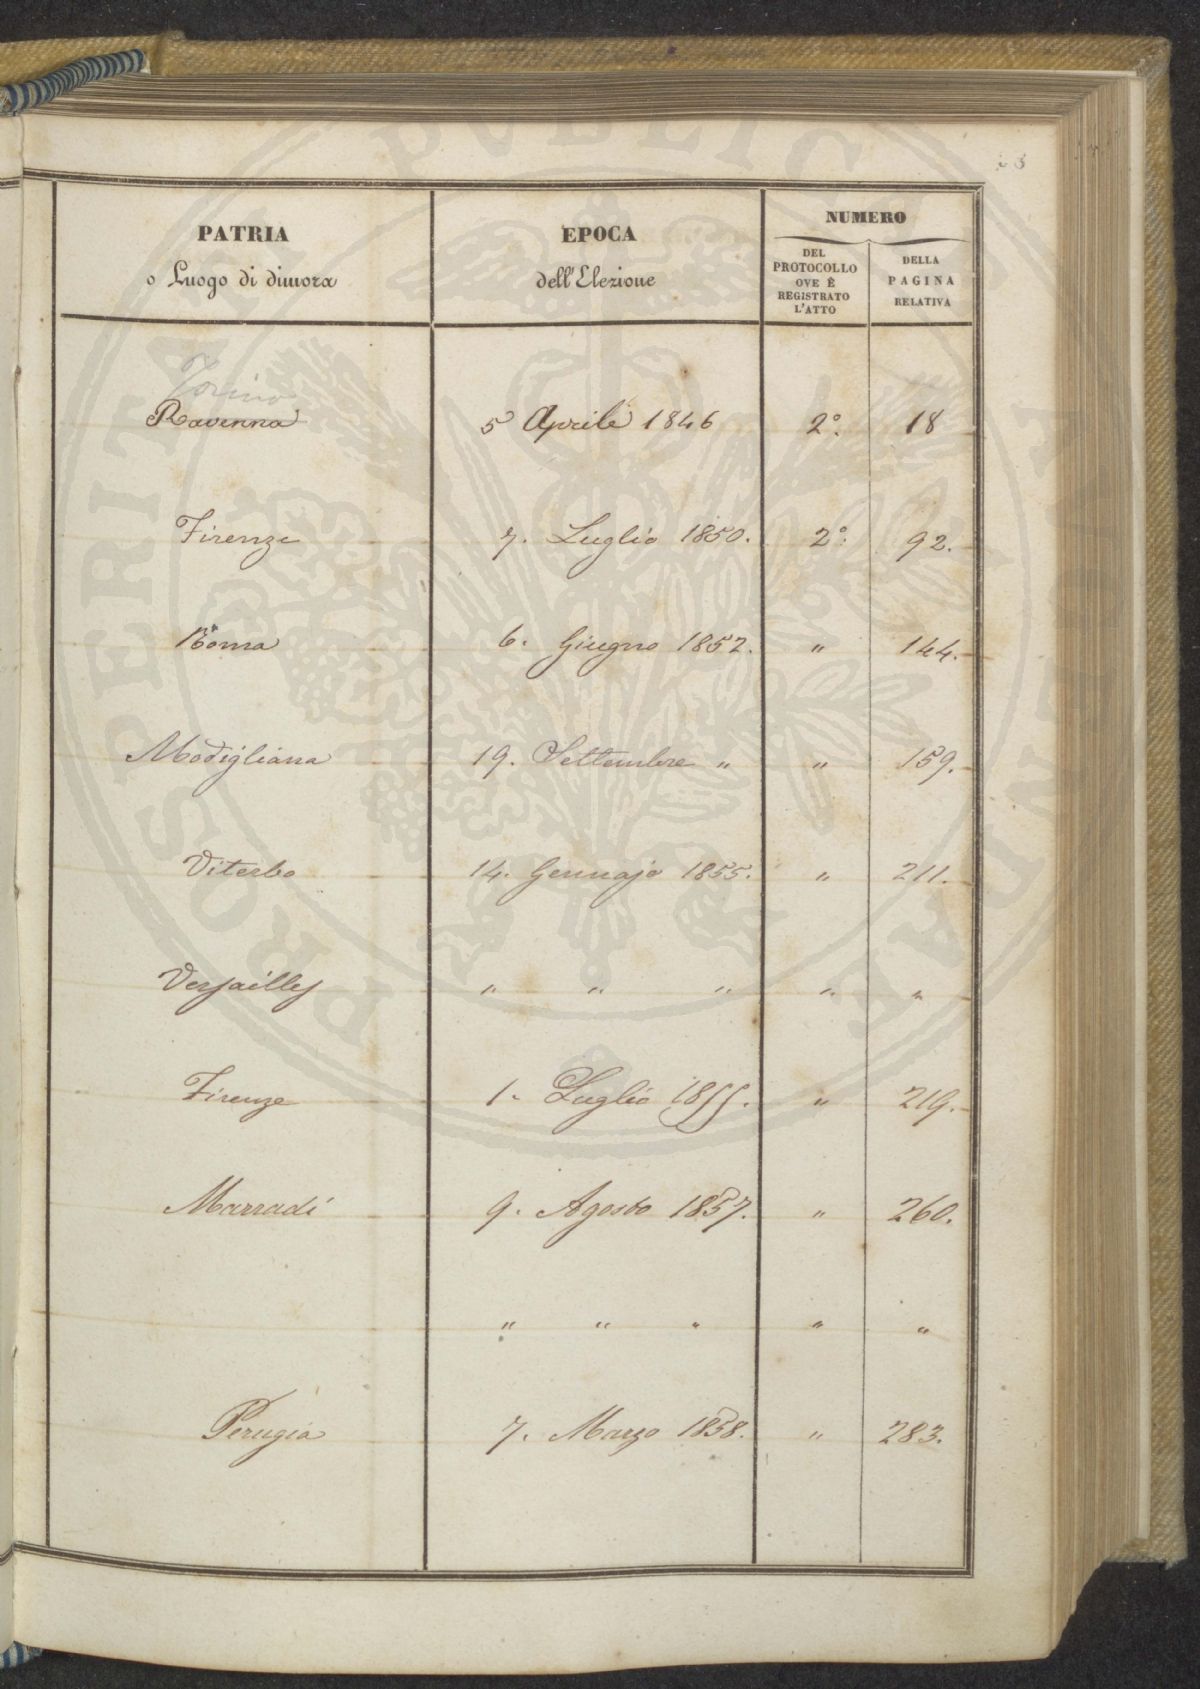 PATRIA
o Luogo di dimora
EPOCA
dell'Elezione
NUMERO
DEL
PROTOCOLLO
OVE È
REGISTRATO
L'ATTO
DELLA
PAGINA
RELATIVA
Torino
Ravenna 5 Aprile 1846 2º. 18
Firenze 7. Luglio 1850. 2º. 92.
Roma 6. Giugno 1852. " 144.
Modigliana 19. Settembre " " 159.
Viterbo 14. Gennajo 1855. " 211.
Versailles " " " " "
Firenze 1. Luglio 1855. " 219.
Marradi 9. Agosto 1857. " 260.
" " " " "
Perugia 7. Marzo 1858. " 283.
PROSPERITATI PUBLICAE